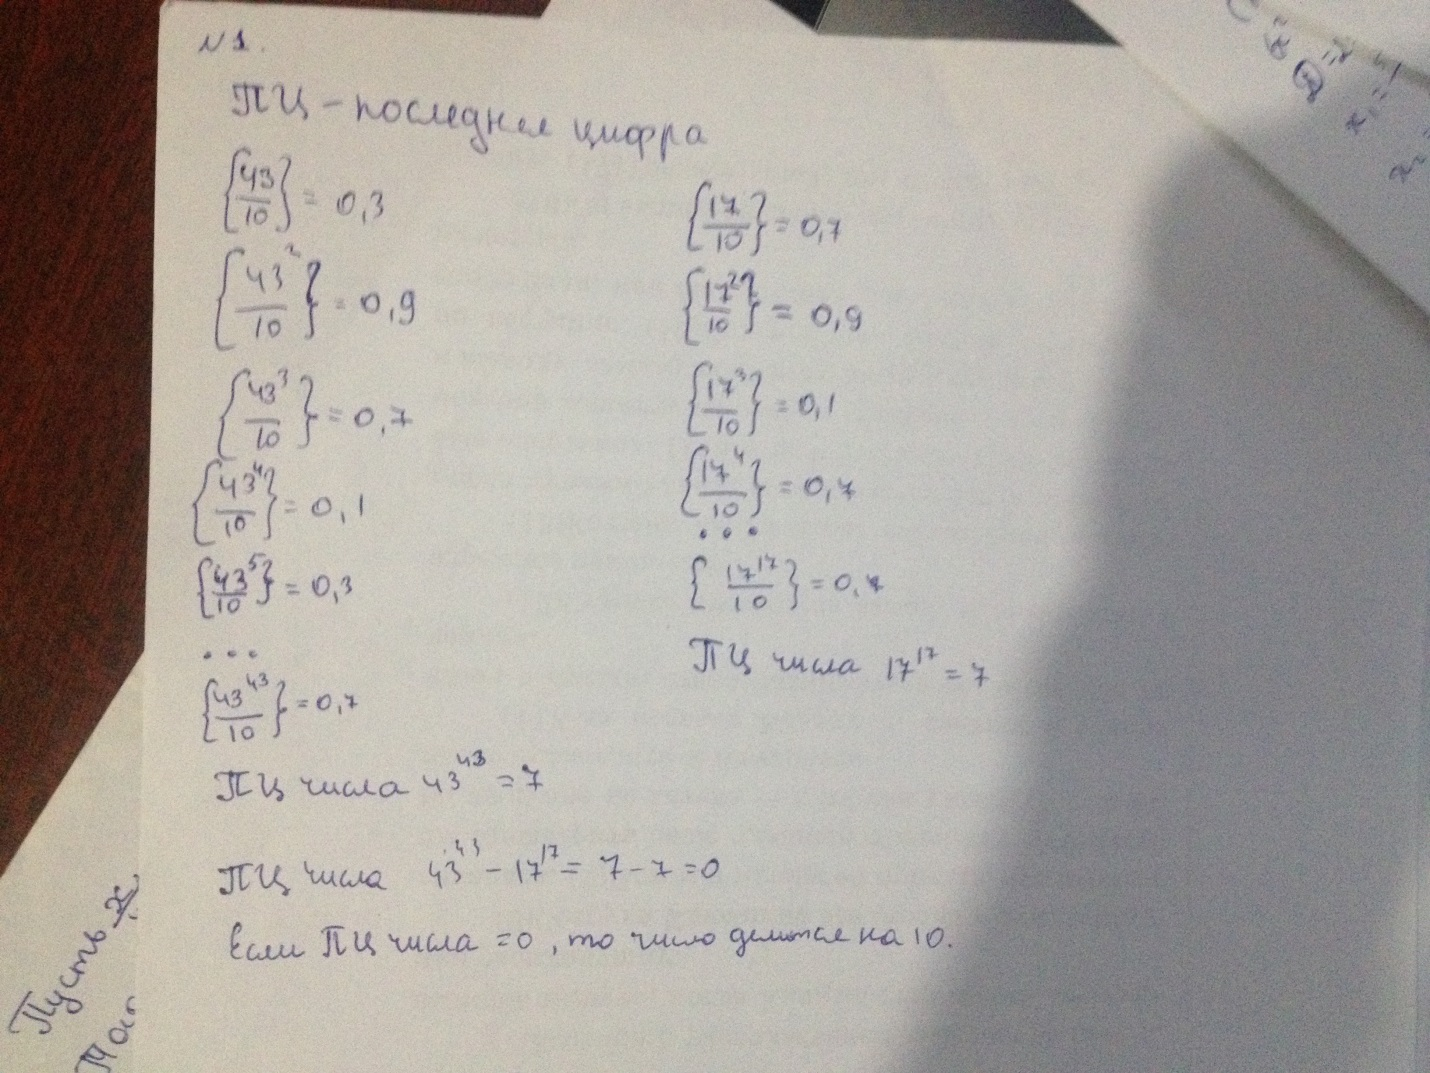 №1.
ПЦ – последняя цифра
{43/10} = 0,3
{43²/10} = 0,9
{43³/10} = 0,7
{43⁴/10} = 0,1
{43⁵/10} = 0,3
...
{43⁴³/10} = 0,7
ПЦ числа 43⁴³ = 7
{17/10} = 0,7
{17²/10} = 0,9
{17³/10} = 0,1
{17⁴/10} = 0,7
...
{17¹⁷/10} = 0,7
ПЦ числа 17¹⁷ = 7
ПЦ числа 43⁴³ – 17¹⁷ = 7 – 7 = 0
Если ПЦ числа = 0, то число делится на 10.
Пусть х